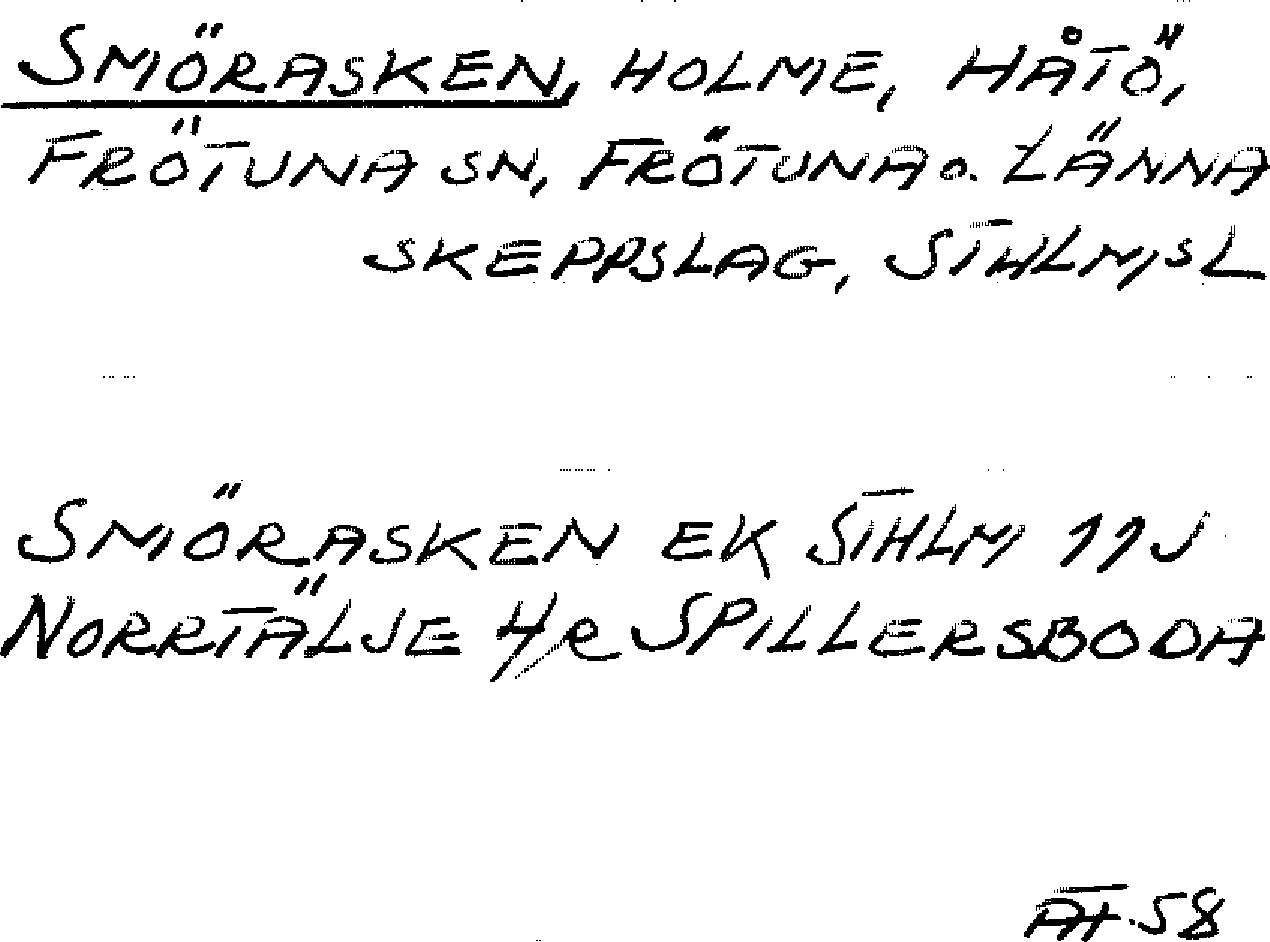 SMÖRASKEN, HOLME, HÅTÖ,
FRÖTUNA SN, FRÖTUNA o. LÄNNA
SKEPPSLAG, STHLMS L
SMÖRASKEN EK STHLM 11J
NORRTÄLJE H/R SPILLERSBODA
58